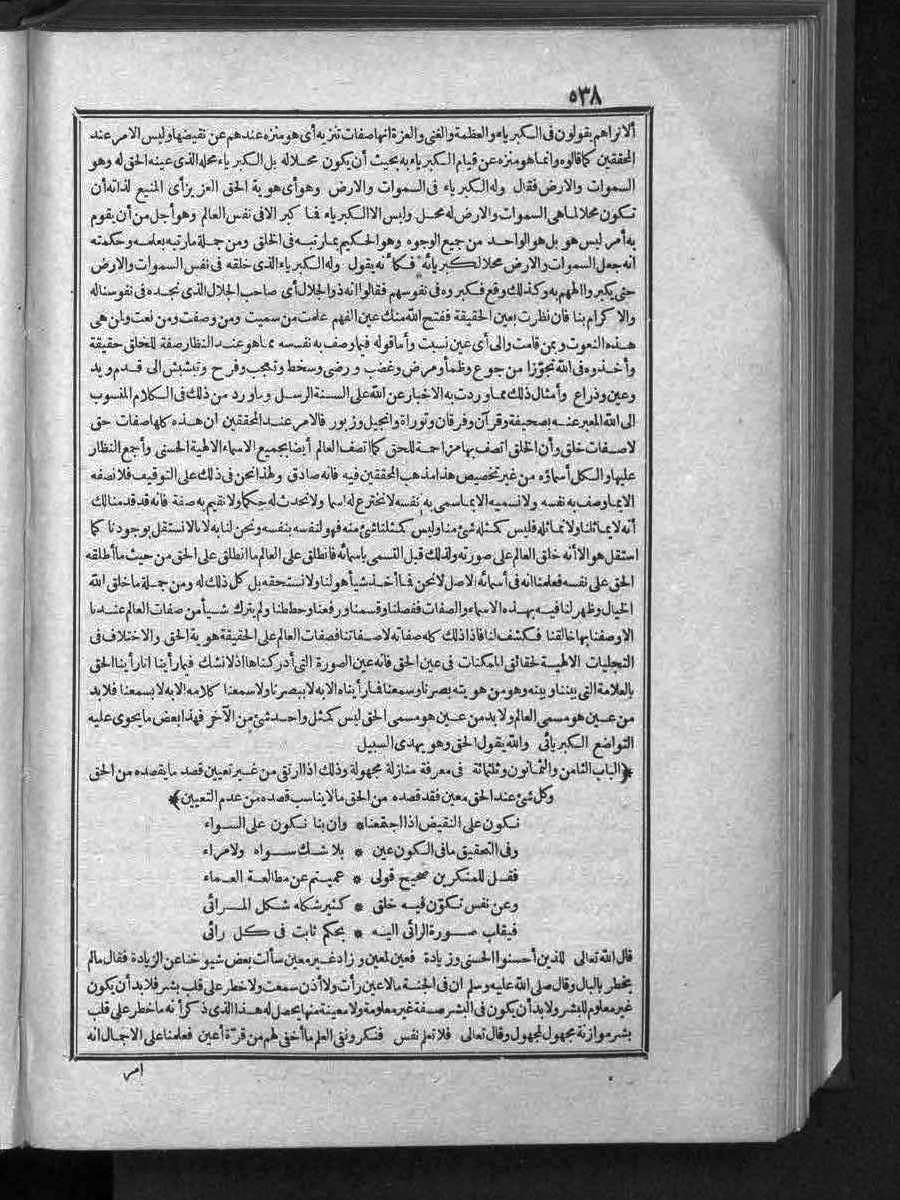 ٥٣٨
ألا تراهم يقولون فى الكبرياء والعظمة والغنى والعزة انها صفات تنزيه أى هو منزه عندهم عن نقيضها وليس الامر عند
المحققين كما قالوه وانما هو منزه عن قيام الكبرياء به بحيث أن يكون محلا له بل الكبرياء محله الذى عينه الحق له وهو
السموات والارض فقال وله الكبرياء فى السموات والارض وهو أى هوية الحق العزيز أى المنيع لذاته أن
تكون محلا لما هى السموات والارض له محل وليس الا الكبرياء فما كبر الا فى نفس العالم وهو أجل من أن يقوم
به أمر ليس هو بل هو الواحد من جيع الوجوه وهو الحكيم بما رتبه فى الخلق ومن جملة ما رتبه بعلمه وحكمته
انه جعل السموات والارض محلا لكبريائه فكأنه يقول وله الكبرياء الذى خلقه فى نفس السموات والارض
حتى يكبروا الههم به وكذلك وقع فكبروه فى نفوسهم فقالوا انه ذو الجلال أى صاحب الجلال الذى نجده فى نفوسنا له
والاكرام بنا فان نظرت بعين الحقيقة ففتح الله منك عين الفهم علمت من سميت ومن وصفت ومن نعت ولمن هى
هذه النعوت وبمن قامت والى أى عين نسبت وأما قوله فيما وصف به نفسه مما هو عند النظار صفة للخلق حقيقة
وأخذوه فى الله تجوّزا من جوع وظمأ ومرض وغضب ورضى وسخط وتعجب وفرح وتبشبش الى قدم ويد
وعين وذراع وأمثال ذلك مما وردت به الاخبار عن الله على السنة الرسل وما ورد من ذلك فى الكلام المنسوب
الى الله المعبر عنه بصحيفة وقرآن وفرقان وتوراة وانجيل وزبور فالامر عند المحققين ان هذه كلها صفات حق
لاصفات خلق وأن الخلق اتصف بها مزاحمة للحق كما اتصف العالم أيضا بجميع الاسماء الالهية الحسنى وأجع النظار
عليها والكل أسماؤه من غير تخصيص هذا مذهب المحققين فيه فانه صادق ولهذا نحن فى ذلك على التوقيف فلا نصفه
الا بما وصف به نفسه ولا نسميه الا بما سمى به نفسه لا نخترع له اسما ولا نحدث له حكما ولا نقيم به صفة فانه قد قدمنا لك
أنه لا يماثلنا ولا نماثله فليس كمثله شئ منا وليس كمثلنا شئ منه فهو لنفسه بنفسه ونحن لنا به لا بنا لانستقل بوجودنا كما
استقل هو الا أنه خلق العالم على صورته ولذلك قبل التسمى باسمائه فانطلق على العالم ما انطلق على الحق من حيث ما أطلقه
الحق على نفسه فعلمنا انه فى أسمائه الاصل لا نحن فما أخذ شيأ هو لنا ولا نستحقه بل كل ذلك له ومن جملة ما خلق الله
الخيال وظهر لنا فيه بهذه الاسماء والصفات ففصلنا وقسمنا ورفعنا وحططنا ولم يترك شيأ من صفات العالم عندنا
الا وصفنا بها خالقنا فكشف لنا فاذا ذلك كله صفاته لا صفاتنا فصفات العالم على الحقيقة هوية الحق والاختلاف فى
التجليات الالهية لحقائق الممكنات فى عين الحق فانه عين الصورة التى أدركناها اذ لا نشك فيما رأينا انا رأينا الحق
بالعلامة التى بيننا وبينه وهو من هويته بصرنا وسمعنا فما رأيناه الا به لا ببصرنا ولا سمعنا كلامه الا به لا بسمعنا فلا بد
من عين هو مسمى العالم ولا بد من عين هو مسمى الحق ليس كمثل واحد شئ من الآخر فهذا بعض ما يحوى عليه
التواضع الكبريائى والله يقول الحق وهو يهدى السبيل
﴿الباب الثامن والثمانون وثلثمائة فى معرفة منازلة مجهولة وذلك اذا ارتقى من غير تعيين قصد ما يقصده من الحق
وكل شئ عند الحق معين فقد قصده من الحق ما لا يناسب قصده من عدم التعيين﴾
نكون على النقيض اذا اجتمعنا * وان بنا نكون على السواء
وفى التحقيق ما فى الكون عين * بلا شك سواه ولا مراء
فقل للمنكرين صحيح قولى * عميتم عن مطالعة العماء
وعن نفس تكوّن فيه خلق * كثير شكله شكل المرائى
فيقلب صورة الرائى اليه * بحكم ثابت فى كل رائى
قال الله تعالى للذين أحسنوا الحسنى وزيادة فعين لمعين وزاد غير معين سألت بعض شيوخنا عن الزيادة فقال ما لم
يخطر بالبال وقال صلى الله عليه وسلم ان فى الجنة ما لا عين رأت ولا أذن سمعت ولا خطر على قلب بشر فلا بد أن يكون
غير معلوم للبشر ولا بد أن يكون فى البشر صفة غير معلومة ولا معينة منها يحصل له هذا الذى ذكر أنه ما خطر على قلب
بشر موازنة مجهول لمجهول وقال تعالى فلا تعلم نفس فنكر ونفى العلم ما أخفى لهم من قرّة أعين فعلمنا على الاجمال انه
امر